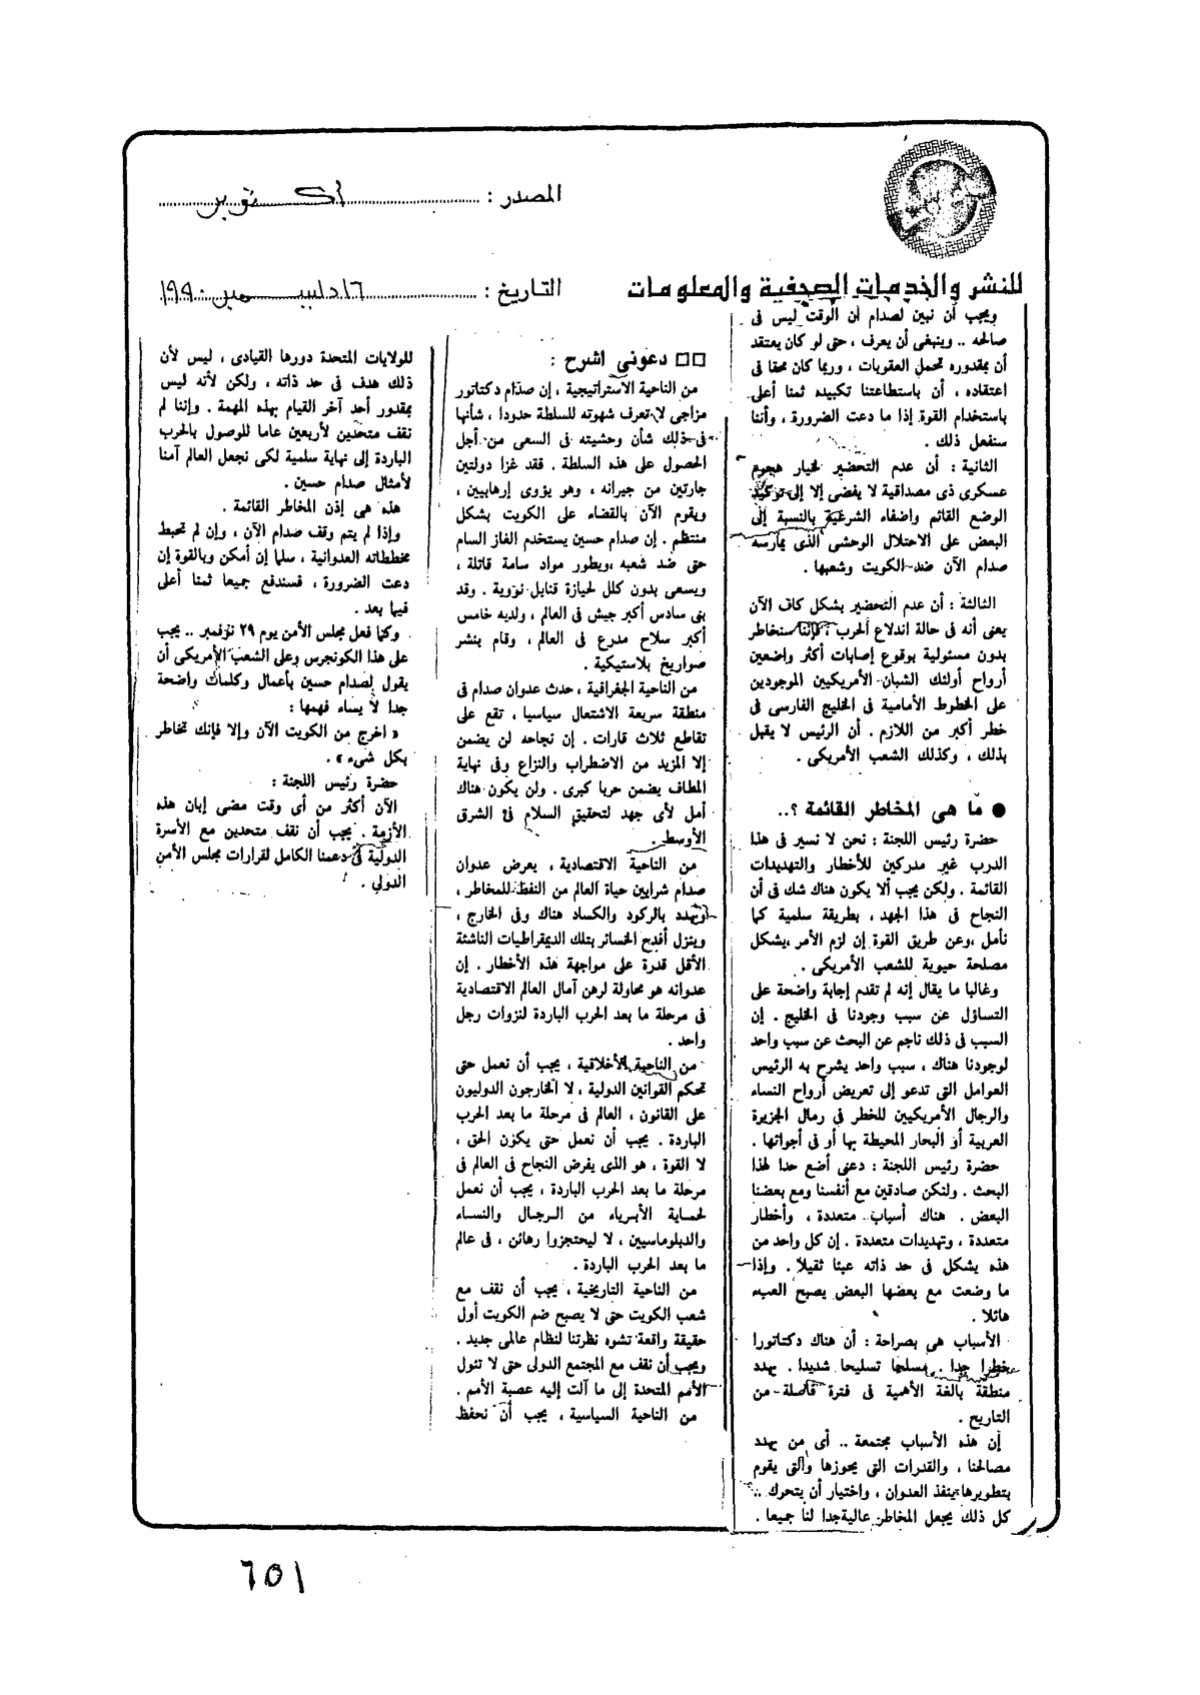 المصدر : أكتوبر
للنشر والخدمات الصحفية والمعلومات
التاريخ : ١٦ ديسمبر ١٩٩٠
ويجب أن نبين لصدام أن الوقت ليس فى
صالحه .. وينبغى أن يعرف ، حتى لو كان يعتقد
أن بمقدوره تحمل العقوبات ، وربما كان محقا فى
اعتقاده ، أن باستطاعتنا تكبيده ثمنا أعلى
باستخدام القوة إذا ما دعت الضرورة ، وأننا
سنفعل ذلك .
الثانية : أن عدم التحضير لخيار هجوم
عسكرى ذى مصداقية لا يفضى إلا إلى توكيد
الوضع القائم واضفاء الشرعية بالنسبة إلى
البعض على الاحتلال الوحشى الذى يمارسه
صدام الآن ضد الكويت وشعبها .
الثالثة : أن عدم التحضير بشكل كاف الآن
يعنى أنه فى حالة اندلاع الحرب ، فإننا سنخاطر
بدون مسئولية بوقوع إصابات أكثر واضعين
أرواح أولئك الشبان الأمريكيين الموجودين
على الخطوط الأمامية فى الخليج الفارسى فى
خطر أكبر من اللازم . أن الرئيس لا يقبل
بذلك ، وكذلك الشعب الأمريكى .
● ما هى المخاطر القائمة ؟..
حضرة رئيس اللجنة : نحن لا نسير فى هذا
الدرب غير مدركين للأخطار والتهديدات
القائمة . ولكن يجب ألا يكون هناك شك فى أن
النجاح فى هذا الجهد ، بطريقة سلمية كما
نأمل ،وعن طريق القوة إن لزم الأمر ،يشكل
مصلحة حيوية للشعب الأمريكى .
وغالبا ما يقال إنه لم تقدم إجابة واضحة على
التساؤل عن سبب وجودنا فى الخليج . إن
السبب فى ذلك ناجم عن البحث عن سبب واحد
لوجودنا هناك ، سبب واحد يشرح به الرئيس
العوامل التى تدعو إلى تعريض أرواح النساء
والرجال الأمريكيين للخطر فى رمال الجزيرة
العربية أو البحار المحيطة بها أو فى أجوائها .
حضرة رئيس اللجنة : دعنى أضع حدا لهذا
البحث . ولنكن صادقين مع أنفسنا ومع بعضنا
البعض . هناك أسباب متعددة ، وأخطار
متعددة ، وتهديدات متعددة . إن كل واحد من
هذه يشكل فى حد ذاته عبئا ثقيلا . وإذا
ما وضعت مع بعضها البعض يصبح العبء
هائلا .
الأسباب هى بصراحة : أن هناك دكتاتورا
خطرا جدا . مسلحا تسليحا شديدا . يهدد
منطقة بالغة الأهمية فى فترة فاصلة من
التاريخ .
إن هذه الأسباب مجتمعة .. أى من يهدد
مصالحنا ، والقدرات التى يحوزها والتى يقوم
بتطويرها ينفذ العدوان ، واختيار أن يتحرك ..
كل ذلك يجعل المخاطر عالية جدا لنا جميعا .
□□ دعونى اشرح :
من الناحية الاستراتيجية ، إن صدام دكتاتور
مزاجى لا تعرف شهوته للسلطة حدودا ، شأنها
فى ذلك شأن وحشيته فى السعى من أجل
الحصول على هذه السلطة . فقد غزا دولتين
جارتين من جيرانه ، وهو يؤوى إرهابيين ،
ويقوم الآن بالقضاء على الكويت بشكل
منتظم . إن صدام حسين يستخدم الغاز السام
حتى ضد شعبه ،ويطور مواد سامة قاتلة ،
ويسعى بدون كلل لحيازة قنابل نووية . وقد
بنى سادس أكبر جيش فى العالم ، ولديه خامس
أكبر سلاح مدرع فى العالم ، وقام بنشر
صواريخ بلاستيكية .
من الناحية الجغرافية ، حدث عدوان صدام فى
منطقة سريعة الاشتعال سياسيا ، تقع على
تقاطع ثلاث قارات . إن نجاحه لن يضمن
إلا المزيد من الاضطراب والنزاع وفى نهاية
المطاف يضمن حربا كبرى . ولن يكون هناك
أمل لأى جهد لتحقيق السلام فى الشرق
الأوسط .
من الناحية الاقتصادية ، يعرض عدوان
صدام شرايين حياة العالم من النفط للمخاطر ،
ويهدد بالركود والكساد هناك وفى الخارج ،
وينزل أفدح الخسائر بتلك الديمقراطيات الناشئة
الأقل قدرة على مواجهة هذه الأخطار . إن
عدوانه هو محاولة لرهن آمال العالم الاقتصادية
فى مرحلة ما بعد الحرب الباردة لنزوات رجل
واحد .
من الناحية الأخلاقية ، يجب أن نعمل حتى
تحكم القوانين الدولية ، لا الخارجون الدوليون
على القانون ، العالم فى مرحلة ما بعد الحرب
الباردة . يجب أن نعمل حتى يكون الحق ،
لا القوة ، هو الذى يفرض النجاح فى العالم فى
مرحلة ما بعد الحرب الباردة ، يجب أن نعمل
لحماية الأبرياء من الرجال والنساء
والدبلوماسيين ، لا ليحتجزوا رهائن ، فى عالم
ما بعد الحرب الباردة .
من الناحية التاريخية ، يجب أن نقف مع
شعب الكويت حتى لا يصبح ضم الكويت أول
حقيقة واقعة تشوه نظرتنا لنظام عالمى جديد .
ويجب أن نقف مع المجتمع الدولى حتى لا تئول
الأمم المتحدة إلى ما آلت إليه عصبة الأمم .
من الناحية السياسية ، يجب أن نحفظ
للولايات المتحدة دورها القيادى ، ليس لأن
ذلك هدف فى حد ذاته ، ولكن لأنه ليس
بمقدور أحد آخر القيام بهذه المهمة . وإننا لم
نقف متحدين لأربعين عاما للوصول بالحرب
الباردة إلى نهاية سلمية لكى نجعل العالم آمنا
لأمثال صدام حسين .
هذه هى إذن المخاطر القائمة .
وإذا لم يتم وقف صدام الآن ، وإن لم تحبط
مخططاته العدوانية ، سلما إن أمكن وبالقوة إن
دعت الضرورة ، فسندفع جميعا ثمنا أعلى
فيما بعد .
وكما فعل مجلس الأمن يوم ٢٩ نوفمبر .. يجب
على هذا الكونجرس وعلى الشعب الأمريكى أن
يقول لصدام حسين بأعمال وكلمات واضحة
جدا لا يساء فهمها :
« اخرج من الكويت الآن وإلا فإنك تخاطر
بكل شىء » .
حضرة رئيس اللجنة :
الآن أكثر من أى وقت مضى إبان هذه
الأزمة . يجب أن نقف متحدين مع الأسرة
الدولية فى دعمنا الكامل لقرارات مجلس الأمن
الدولى .
٦٥١